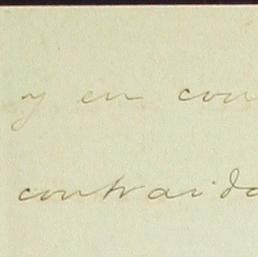 y en con
contraido